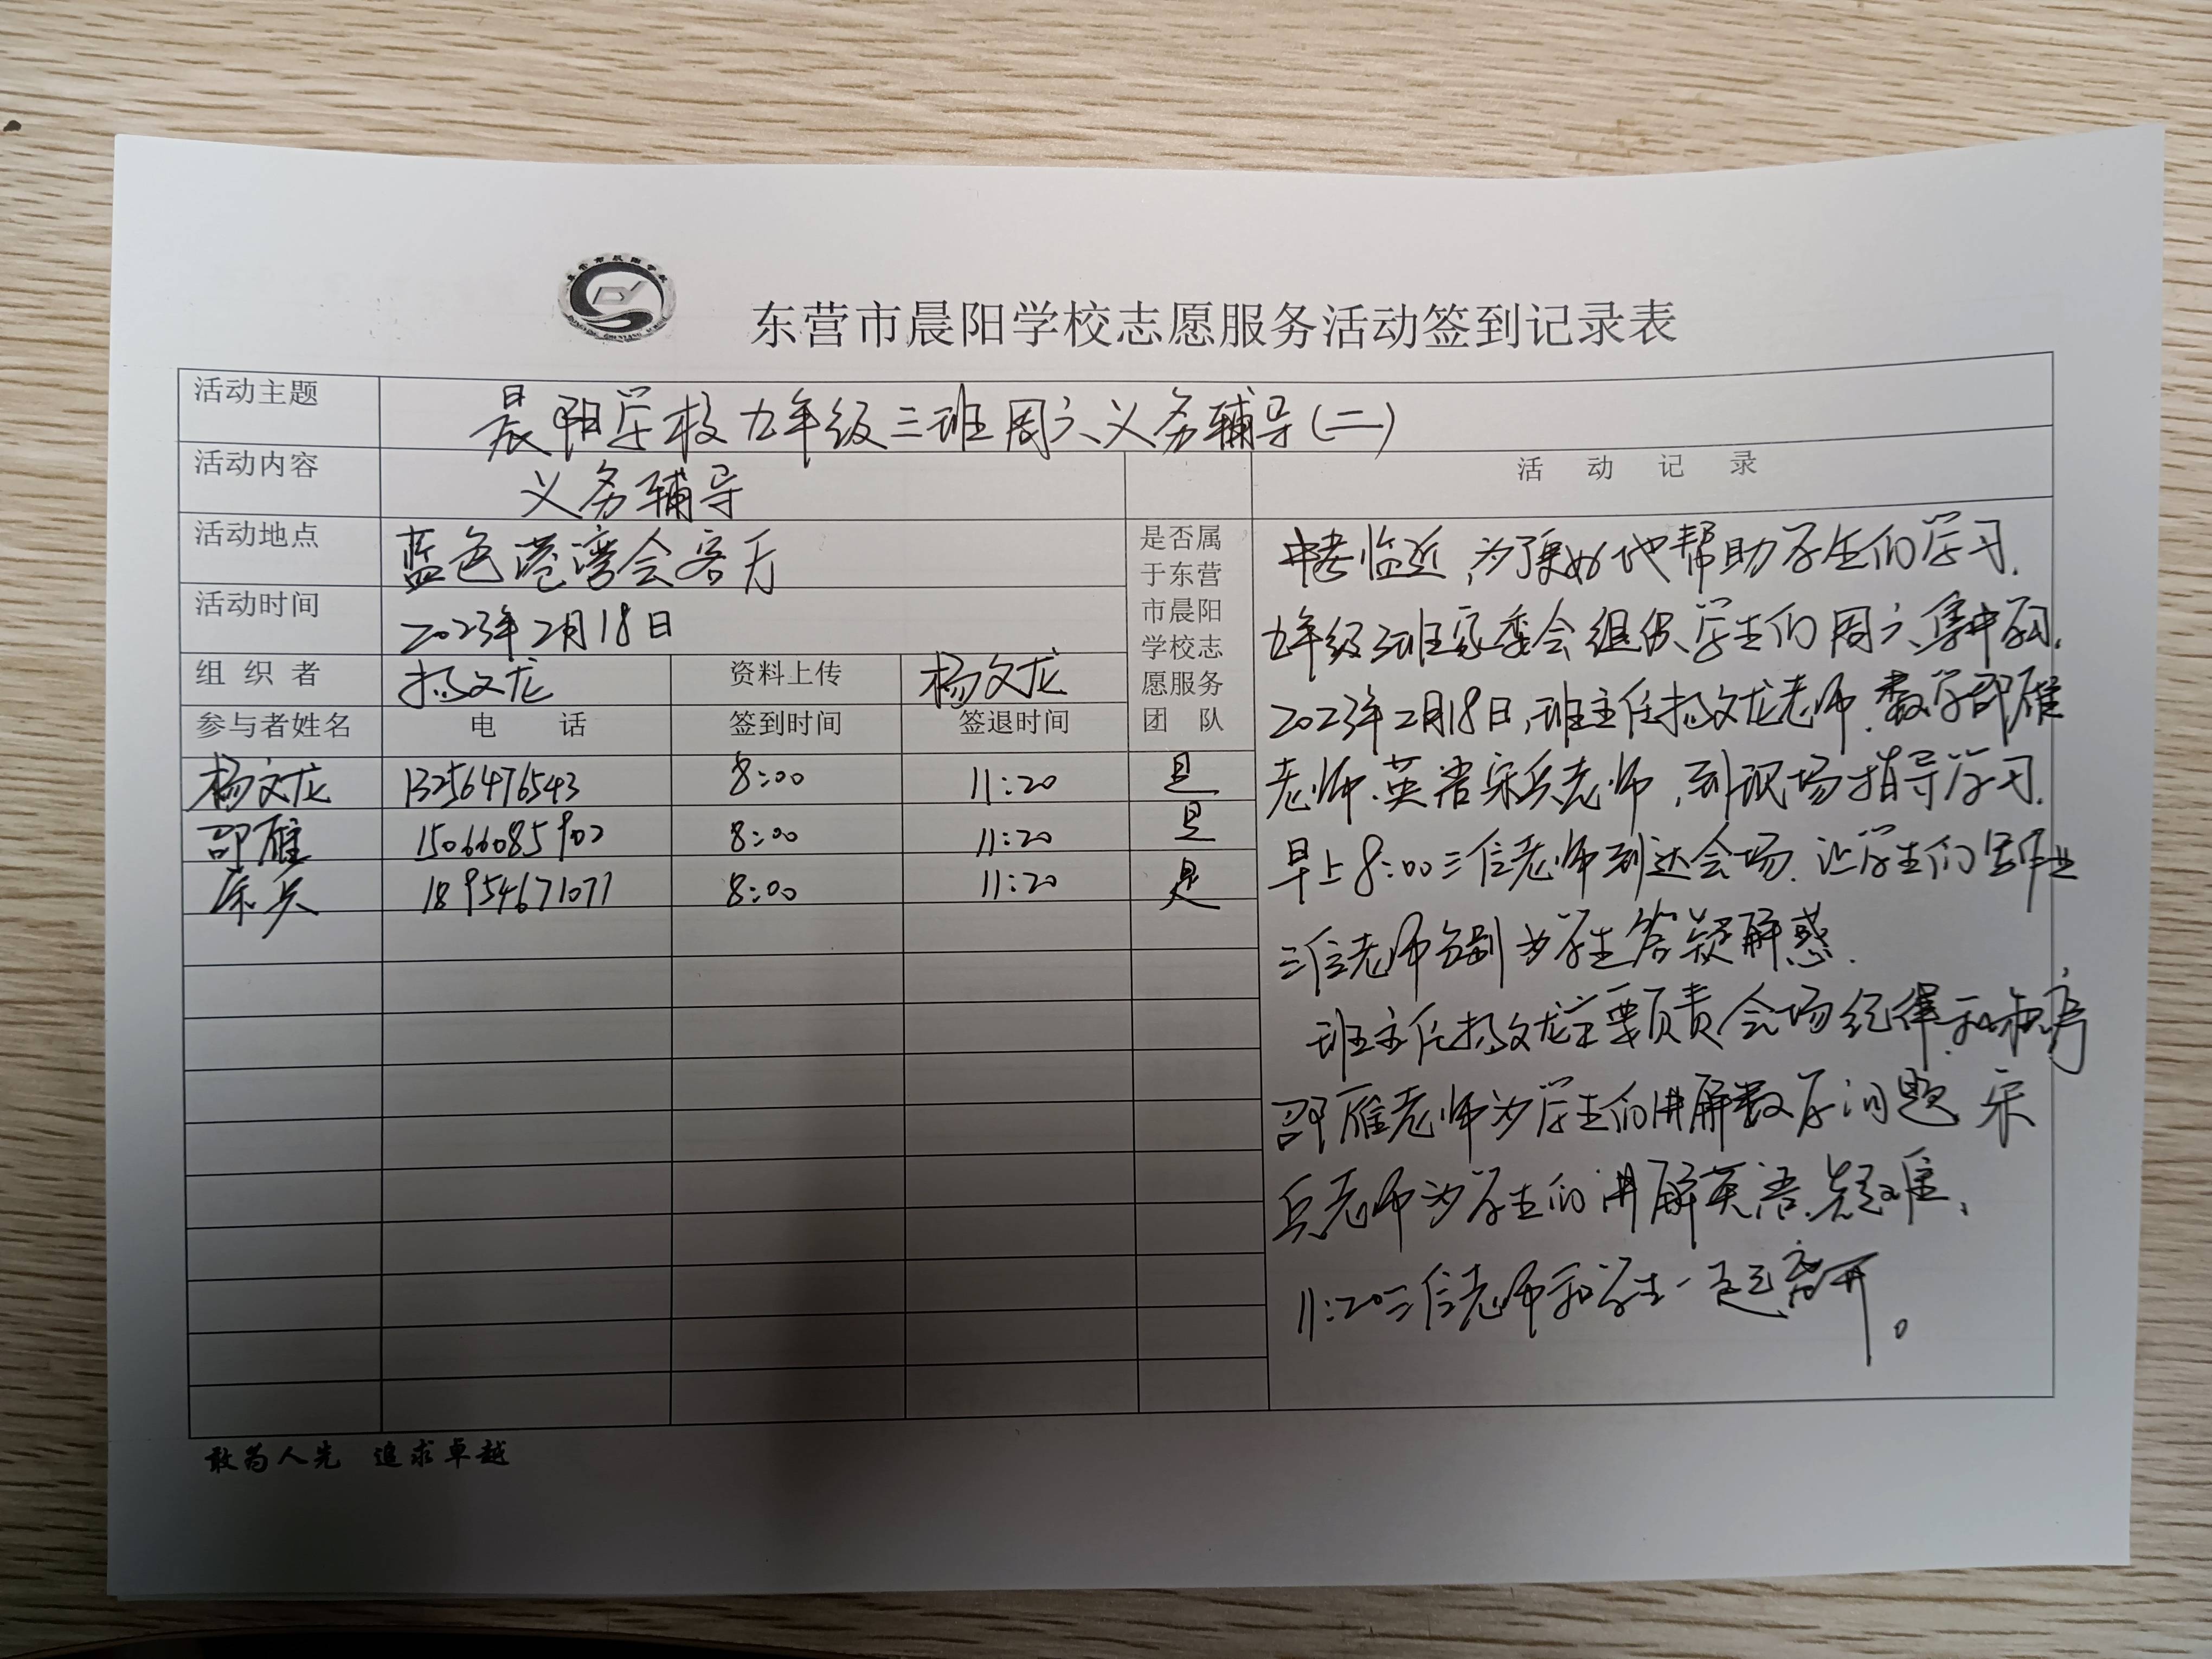 东营市晨阳学校志愿服务活动签到记录表
活动主题 晨阳学校九年级三班周六义务辅导(二)
活动内容 义务辅导
活动地点 蓝色港湾会客厅
活动时间 2023年2月18日
组织者 杨文龙 资料上传 杨文龙
参与者姓名 电话 签到时间 签退时间 是否属于东营市晨阳学校志愿服务团队
杨文龙 13256476543 8:00 11:20 是
邵雁 15066085902 8:00 11:20 是
宋兵 18954671077 8:00 11:20 是
活动记录
中考临近,为了更好地帮助学生们学习.
九年级三班家委会组织学生们周六集中学习.
2023年2月18日,班主任杨文龙老师.数学邵雁
老师.英语宋兵老师,到现场指导学习.
早上8:00三位老师到达会场.让学生们写作业
三位老师分别为学生答疑解惑.
班主任杨文龙主要负责会场纪律和秩序
邵雁老师为学生们讲解数学问题 宋
兵老师为学生们讲解英语疑难、
11:20三位老师和学生一起离开。
敢为人先 追求卓越